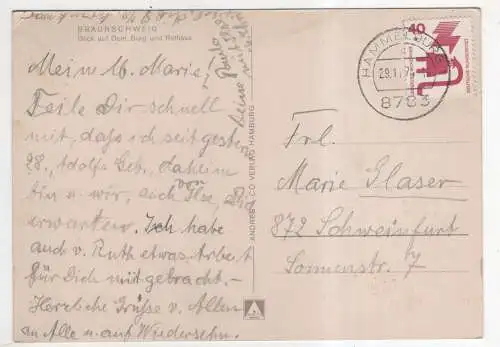 BRAUNSCHWEIG
Blick auf Dom, Burg und Rathaus
Meine lb. Marie!
Teile Dir schnell
mit, daß ich seit gestern
28., Adolfs Geb., daheim
bin u. wir, auch von Ilse, Dich
erwarten. Ich habe
auch v. Ruth etwas Arbeit
für Dich mitgebracht. –
Herzliche Grüße v. Allen
an Alle u. auf Wiedersehn.
ANDRES + CO VERLAG HAMBURG
HAMMELBURG
29.1.7
8783
40
DEUTSCHE BUNDESPOST
Frl.
Marie Glaser
872 Schweinfurt
Sonnenstr. 7